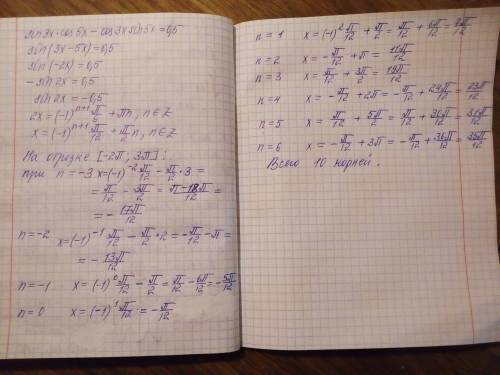 sin3x·cos5x − cos3x sin5x = 0,5
sin(3x−5x) = 0,5
sin(−2x) = 0,5
− sin 2x = 0,5
sin 2x = − 0,5
2x = (−1)^{n+1} π/6 + πn, n∈Z
x = (−1)^{n+1} π/12 + π/2 n, n∈Z
На отрезке [−2π; 3π]:
при n = −3 x = (−1)^{-2} π/12 − π/2 · 3 =
= π/12 − 3π/2 = π−18π/12 =
= − 17π/12
n = −2 x = (−1)^{-1} π/12 − π/2 · 2 = − π/12 − π =
= − 13π/12
n = −1 x = (−1)^0 π/12 − π/2 = π/12 − 6π/12 = − 5π/12
n = 0 x = (−1)^1 π/12 = − π/12
n = 1 x = (−1)^2 π/12 + π/2 = π/12 + 6π/12 = 7π/12
n = 2 x = − π/12 + π = 11π/12
n = 3 x = π/12 + 3π/2 = 19π/12
n = 4 x = − π/12 + 2π = − π/12 + 24π/12 = 23π/12
n = 5 x = π/12 + 5π/2 = π/12 + 30π/12 = 31π/12
n = 6 x = − π/12 + 3π = − π/12 + 36π/12 = 35π/12
Всего 10 корней.